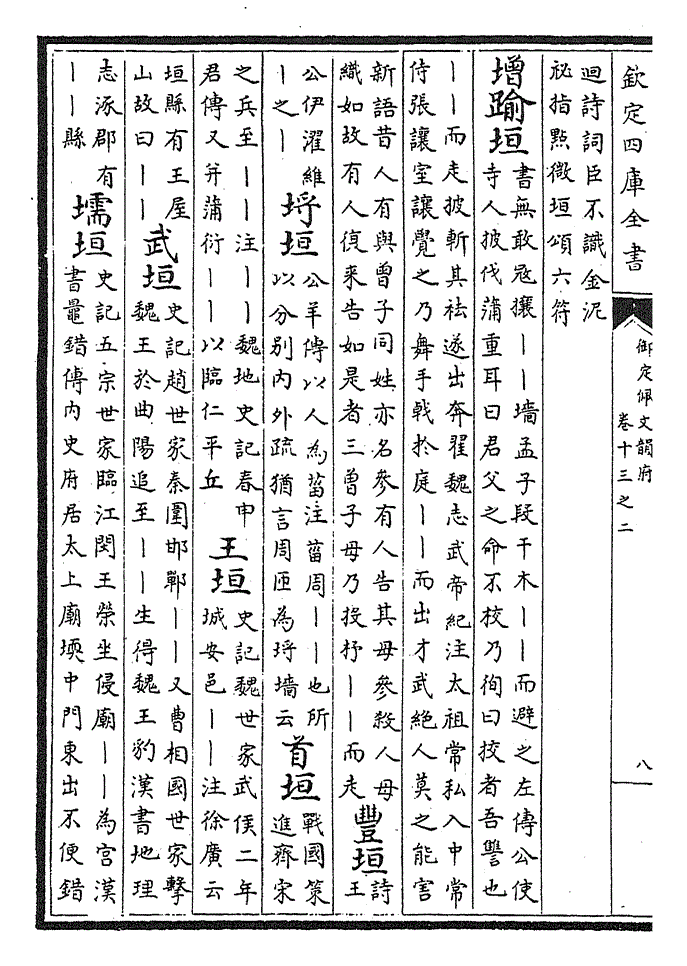 欽定四庫全書
御定佩文韻府
卷十三之二
八
迴詩詞臣不識金泥
祕指點微垣頌六符
增踰垣
書無敢宼攘丨丨墻孟子段干木丨丨而避之左傳公使
寺人披伐蒲重耳曰君父之命不校乃徇曰挍者吾讐也
丨丨而走披斬其袪遂出奔翟魏志武帝紀注太祖常私入中常
侍張讓室讓覺之乃舞手戟於庭丨丨而出才武絶人莫之能害
新語昔人有與曾子同姓亦名參有人告其母參殺人母
織如故有人復来告如是者三曾子母乃投杼丨丨而走
豐垣
詩
王
公伊濯維
丨之丨
埒垣
公羊傳以人為菑注菑周丨丨也所
以分别内外疏猶言周匝為埒墻云
首垣
戰國策
進齊宋
之兵至丨丨注丨丨魏地史記春申
君傳又并蒲衍丨丨以臨仁平丘
王垣
史記魏世家武侯二年
城安邑丨丨注徐廣云
垣縣有王屋
山故曰丨丨
武垣
史記趙世家秦圍邯鄲丨丨又曹相國世家擊
魏王於曲陽追至丨丨生得魏王豹漢書地理
志涿郡有
丨丨縣
壖垣
史記五宗世家臨江閔王榮坐侵廟丨丨為宮漢
書鼂錯傳内史府居太上廟堧中門東出不便錯